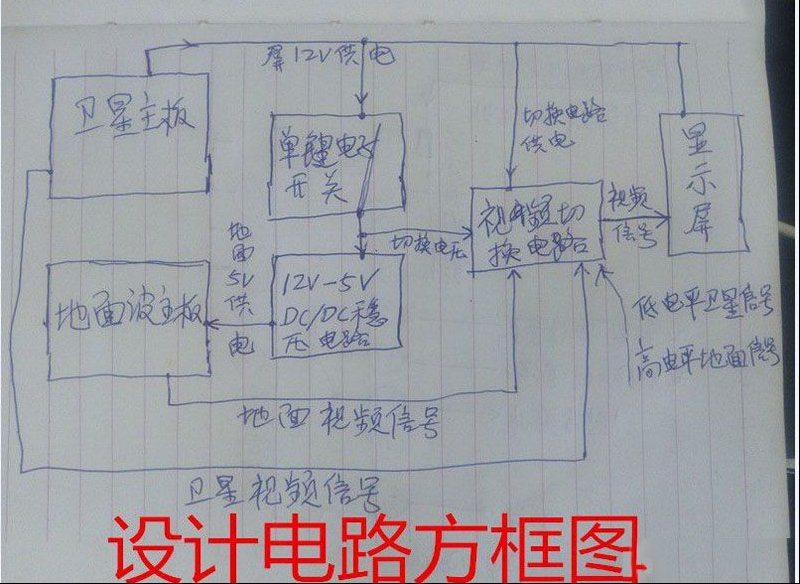 屏12V供电
卫星主板
单键电子
开关
切换电路
供电
显
示
屏
视频切
换电路
视频
信号
切换电压
地
面
5V
供
电
12V-5V
DC/DC稳
压电路
地面波主板
低电平卫星信号
高电平地面信号
地面视频信号
卫星视频信号
设计电路方框图